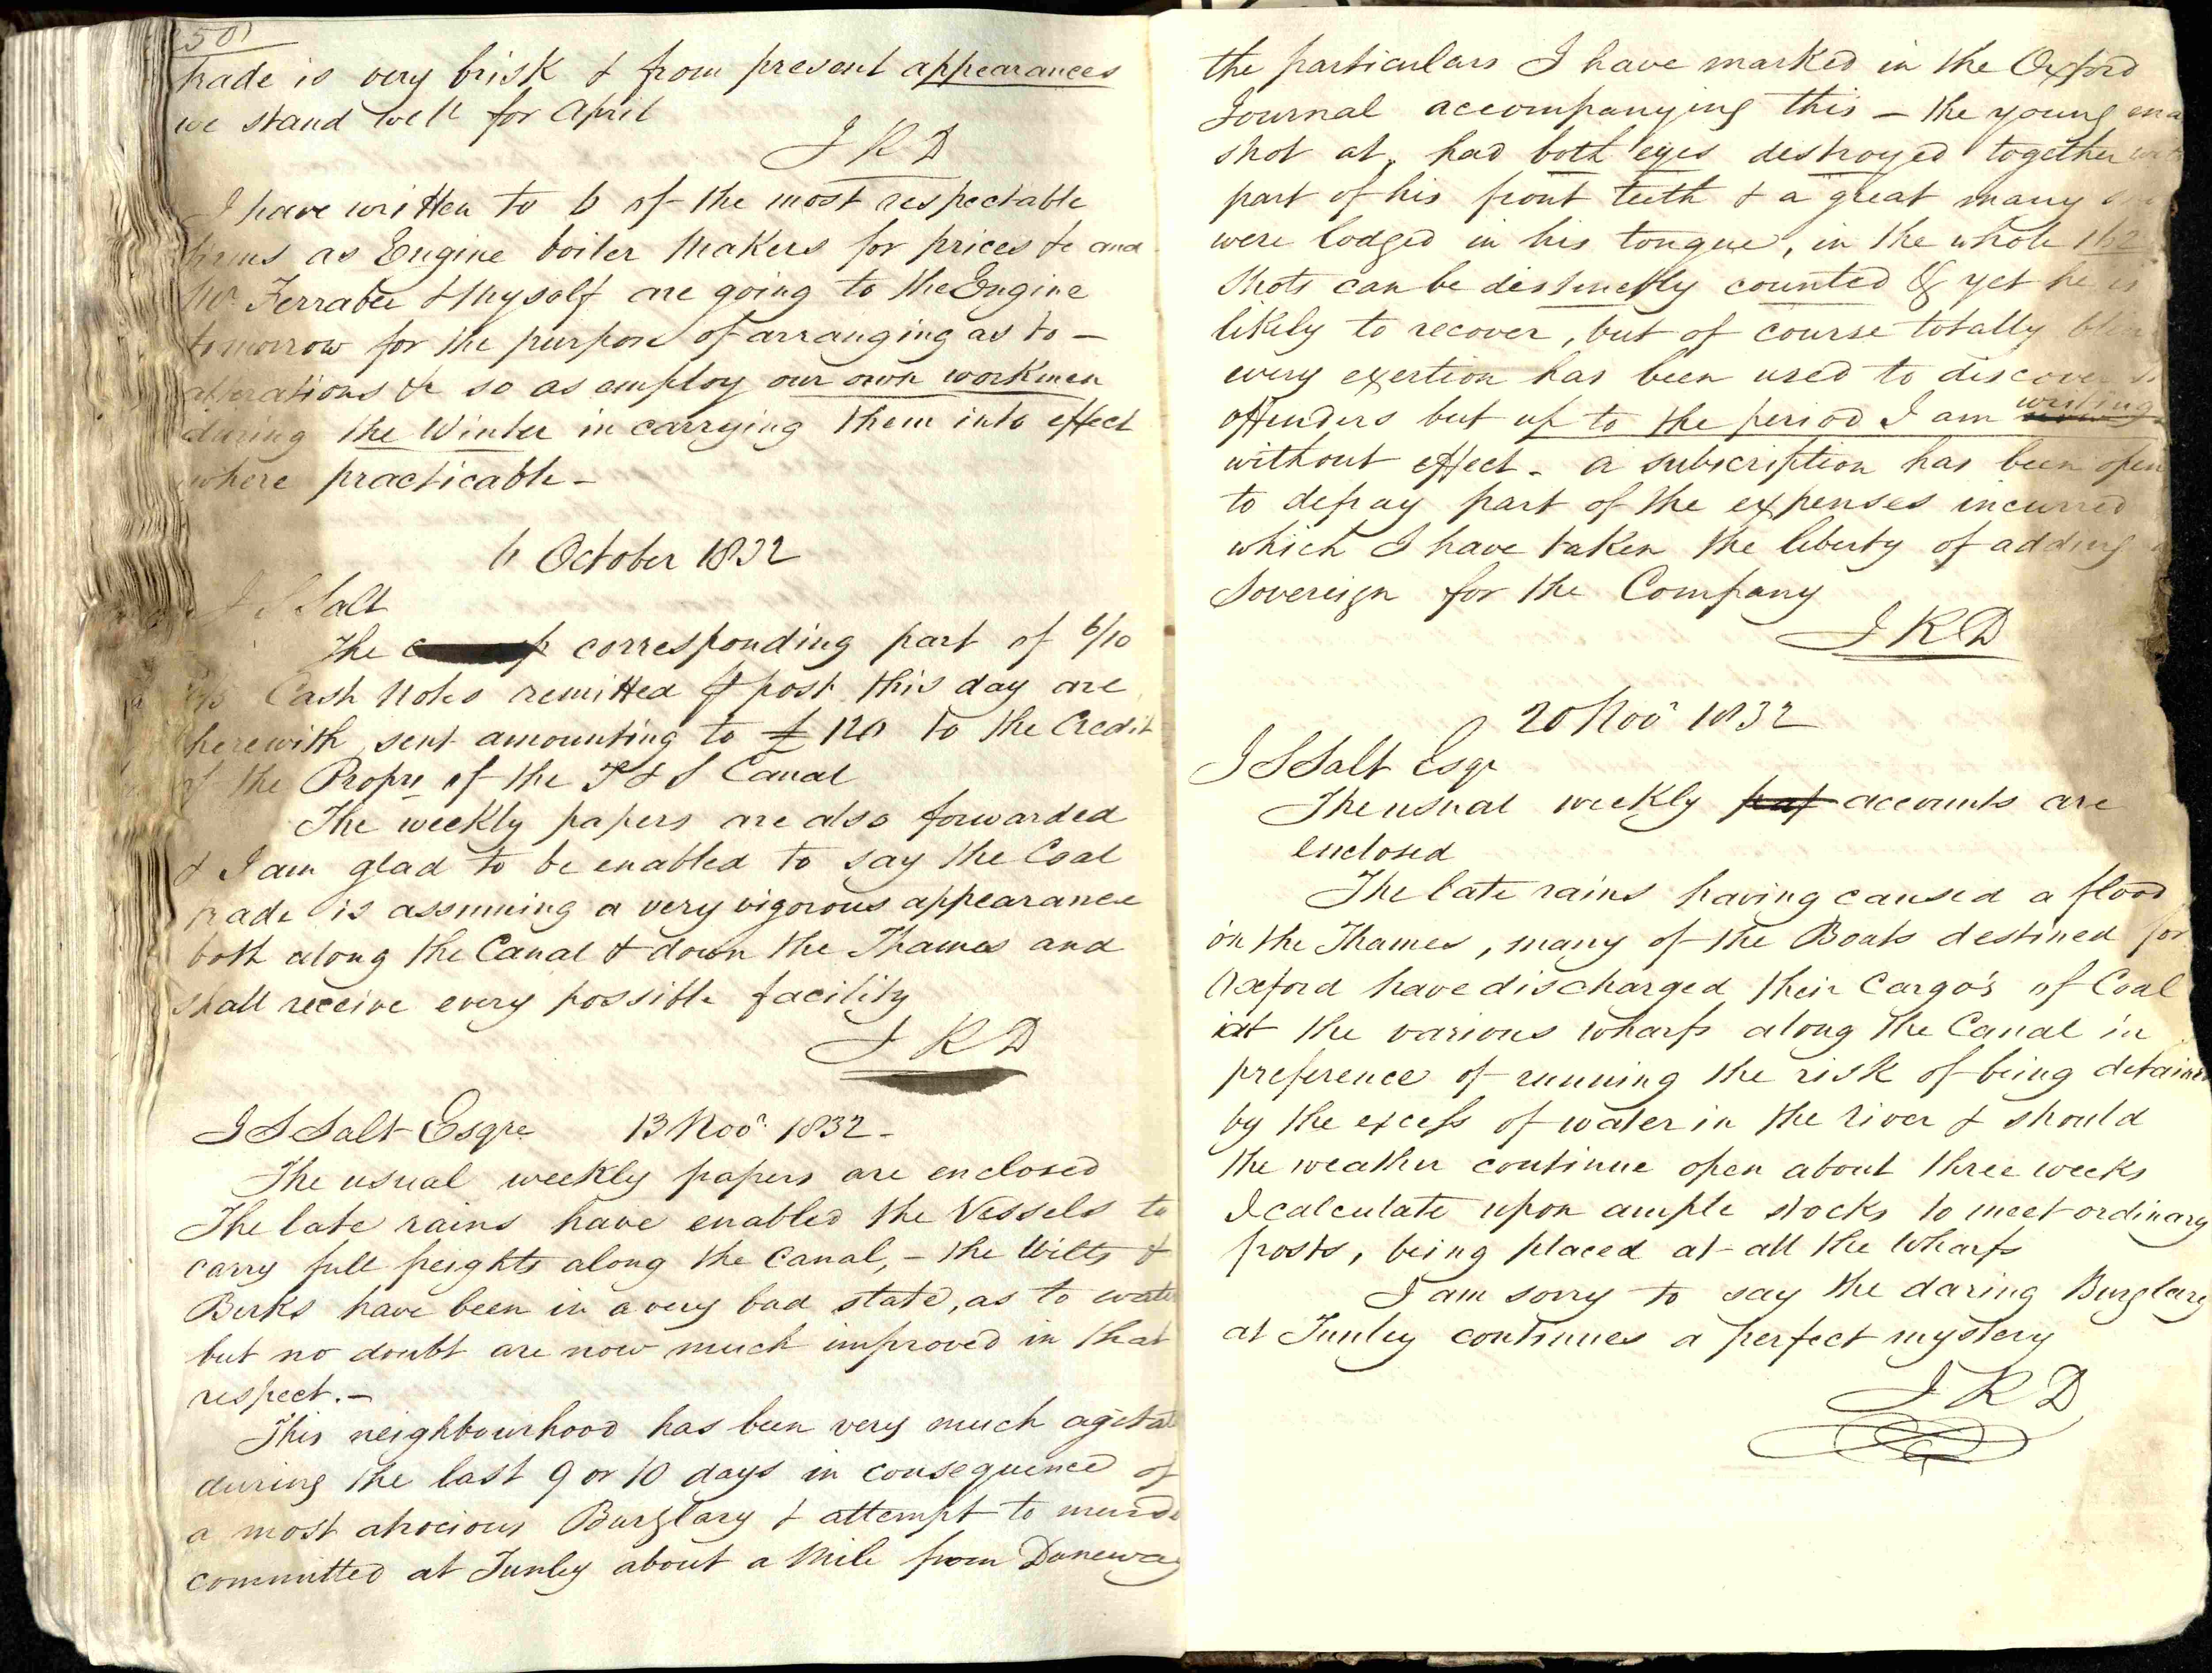 501
trade is very brisk & from present appearances
we stand well for April
J R D
I have written to 6 of the most respectable
firms as Engine boiler Makers for prices &c and
Mr Ferrabee & Myself are going to the Engine
tomorrow for the purpose of arranging as to —
alterations &c so as employ our own workmen
during the Winter in carrying them into effect
where practicable –
6 October 1832
J S Salt
The corresponding part of 6/10
Cash Notes remitted post this day are
herewith sent amounting to £ 120 to the Credit
of the Proprs of the T & S Canal
The weekly papers are also forwarded
& I am glad to be enabled to say the Coal
trade is assuming a very vigorous appearance
both along the Canal & down the Thames and
shall receive every possible facility
J R D
J S Salt Esqre 13 Novr 1832 –
The usual weekly papers are enclosed
The late rains have enabled the Vessels to
carry full freights along the Canal, – the Wilts &
Berks have been in a very bad state, as to water
but no doubt are now much improved in that
respect. –
This neighbourhood has been very much agitat
during the last 9 or 10 days in consequence of
a most atrocious Burglary & attempt to murde
committed at Tunley about a Mile from Daneway
the particulars I have marked in the Oxford
Journal accompanying this – the young ma
shot at, had both eyes destroyed together with
part of his front teeth & a great many
were lodged in his tongue, in the whole 162
shots can be distinctly counted & yet he is
likely to recover, but of course totally blin
every exertion has been used to discover
offenders but up to the period I am writing
without effect – a subscription has been open
to defray part of the expenses incurred
which I have taken the liberty of adding a
Sovereign for the Company
J R D
20 Novr 1832
J S Salt Esqr
The usual weekly pap accounts are
enclosed
The late rains having caused a flood
on the Thames, many of the Boats destined for
Oxford have discharged their Cargo's of Coal
at the various wharfs along the Canal in
preference of running the risk of being detain
by the excess of water in the river & should
the weather continue open about three weeks
I calculate upon ample stocks to meet ordinary
frosts, being placed at all the Wharfs
I am sorry to say the daring Burglary
at Tunley continues a perfect mystery
J R D